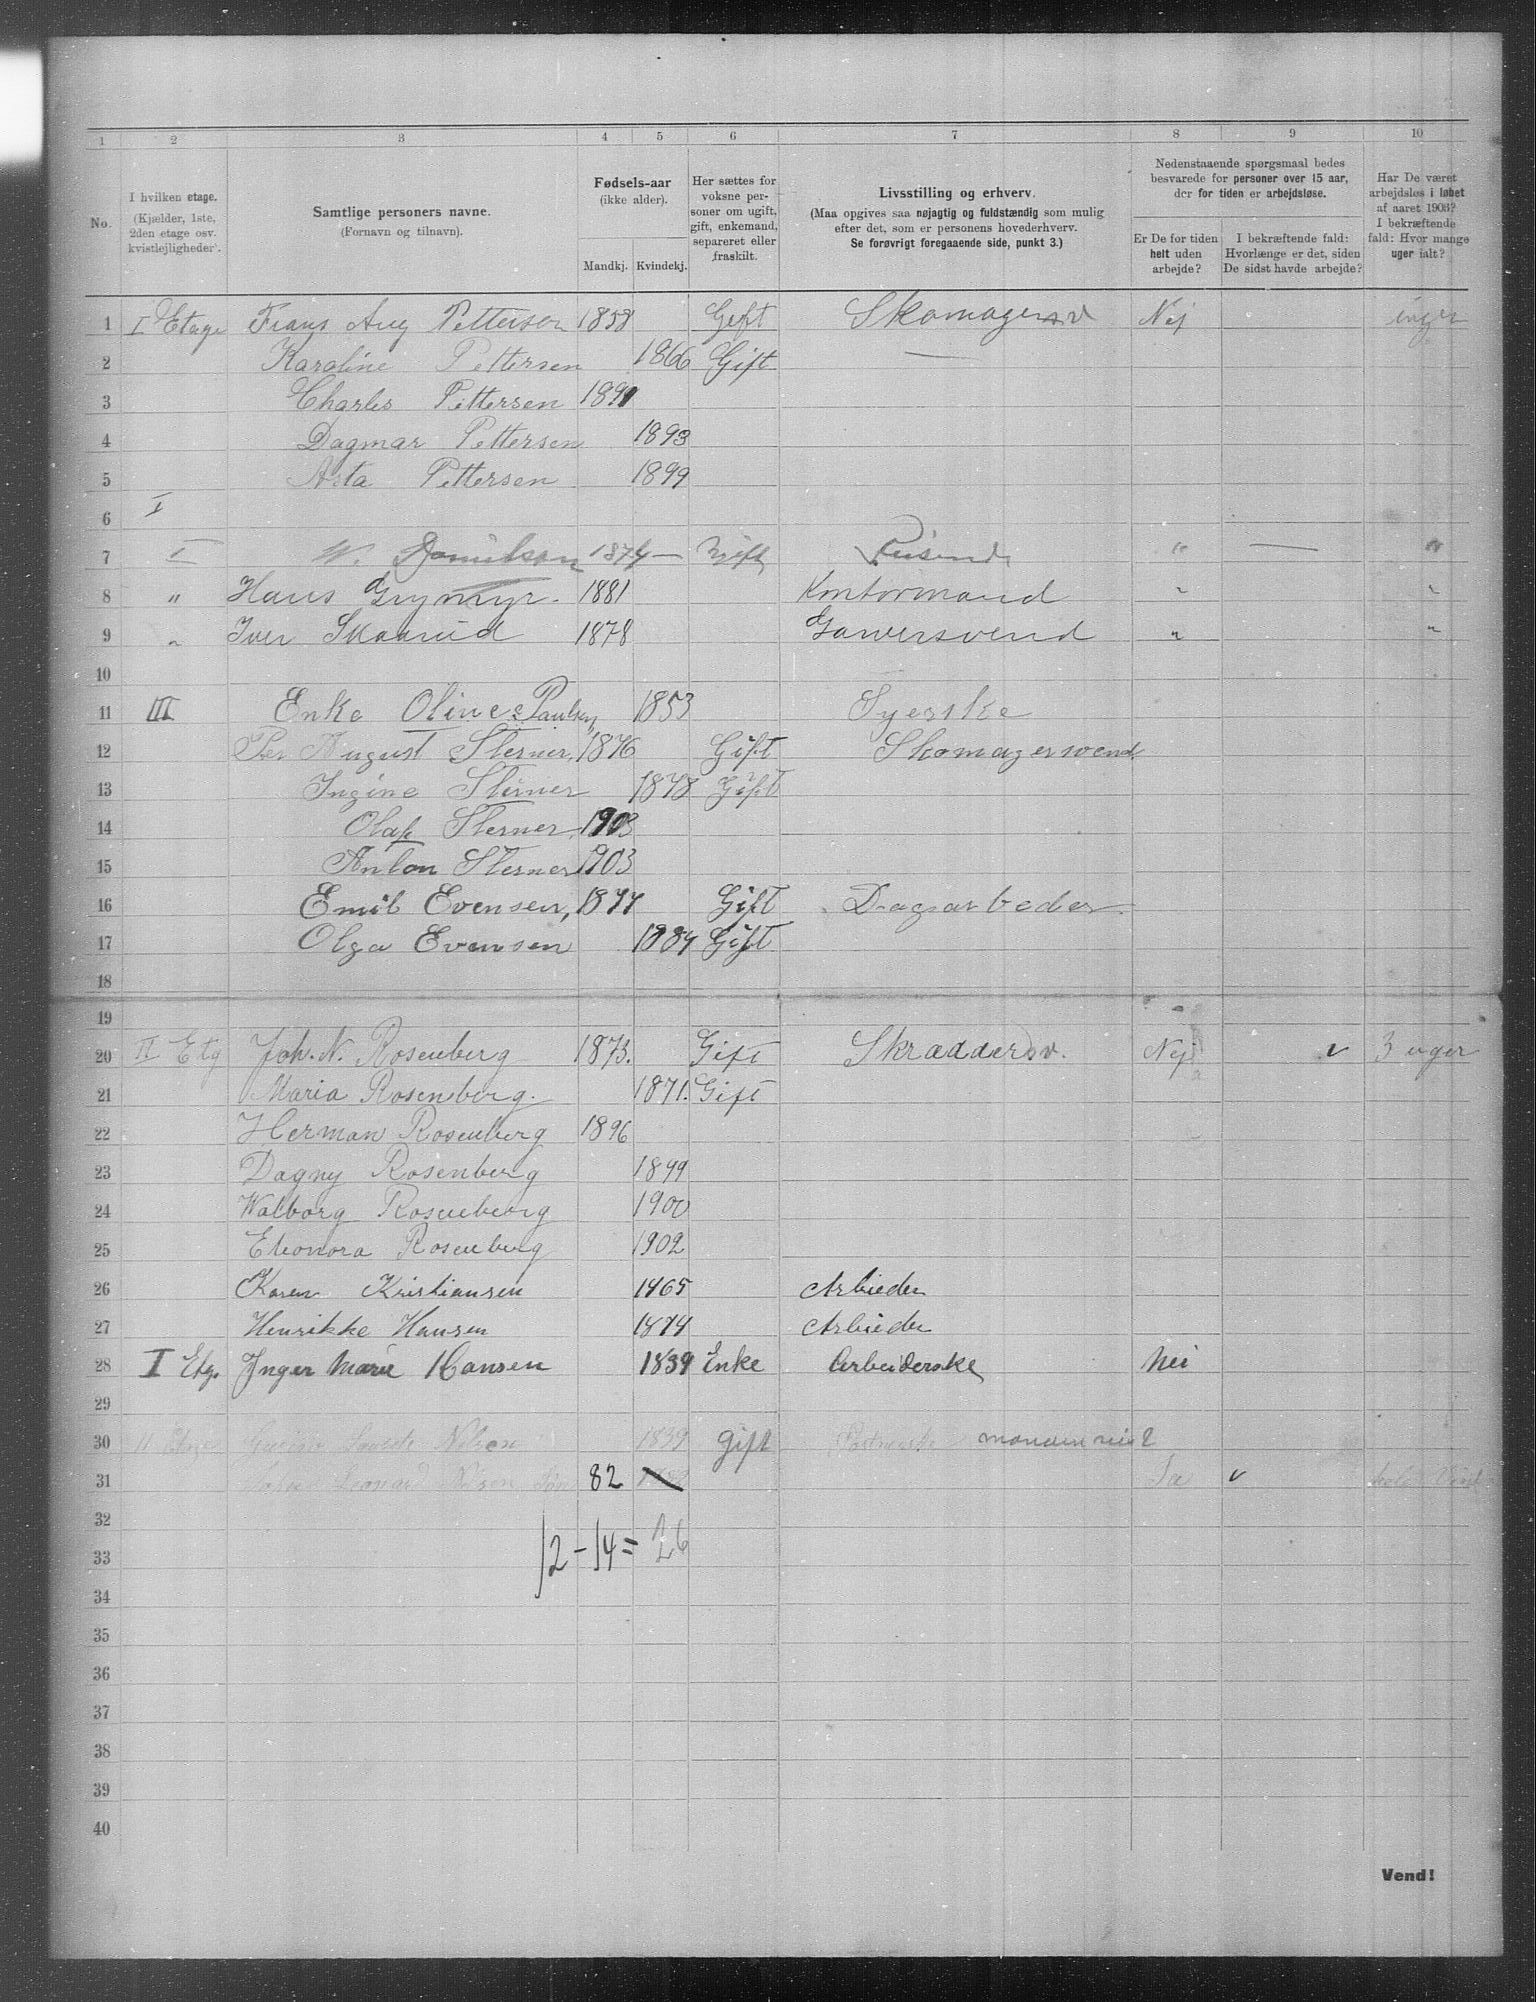 1 2 3 4 5 6 7 8 9 10
No.
I hvilken etage.
(Kjælder, 1ste,
2den etage osv.
kvistlejligheder).
Samtlige personers navne.
(Fornavn og tilnavn).
Fødsels-aar
(ikke alder).
Mandkj. Kvindekj.
Her sættes for
voksne per-
soner om ugift,
gift, enkemand,
separeret eller
fraskilt.
Livsstilling og erhverv.
(Maa opgives saa nøjagtig og fuldstændig som mulig
efter det, som er personens hovederhverv.
Se forøvrigt foregaaende side, punkt 3.)
Nedenstaaende spørgsmaal bedes
besvarede for personer over 15 aar,
der for tiden er arbejdsløse.
Er De for tiden
helt uden
arbejde?
I bekræftende fald:
Hvorlænge er det, siden
De sidst havde arbejde?
Har De været
arbejdsløs i løbet
af aaret 1903?
I bekræftende
fald: Hvor mange
uger ialt?
1 I Etage Frans Aug Petterson 1858 Gift Skomagersv Nej ingen
2 Karoline Pettersen 1866 Gift —
3 Charles Pettersen 1891
4 Dagmar Pettersen 1893
5 Asta Pettersen 1899
6 I
7 I W. Danielson 1874 — Ugift Reisende " — "
8 " Hans Grymyr. 1881 Kontormand " "
9 " Iver Skaarud 1878 Garversvend " "
10
11 III Enke Oline Paulsen 1853 Syerske
12 Per August Sterner, 1876 Gift Skomagersvend
13 Ingine Sterner 1878 Gift
14 Olaf Sterner, 1903
15 Anton Sterner 1903
16 Emil Evensen, 1877 Gift Dagarbeder
17 Olga Evensen 1884 Gift
18
19
20 II Etg Joh. N. Rosenberg 1873. Gift Skræddersv. Nej v 3 uger
21 Maria Rosenberg. 1871. Gift
22 Herman Rosenberg 1896
23 Dagny Rosenberg 1899
24 Walborg Rosenberg 1900
25 Eleonora Rosenberg 1902
26 Karen Kristiansen 1865 Arbieder
27 Henrikke Hansen 1874 Arbieder
28 I Etg. Inger Marie Hansen 1839 Enke Arbeiderske Nei
29
30 II Etage Nilsen 1839 gift
31 Leonard Nilsen 82 Ja v
32
33 12 - 14 = 26
34
35
36
37
38
39
40
Vend!